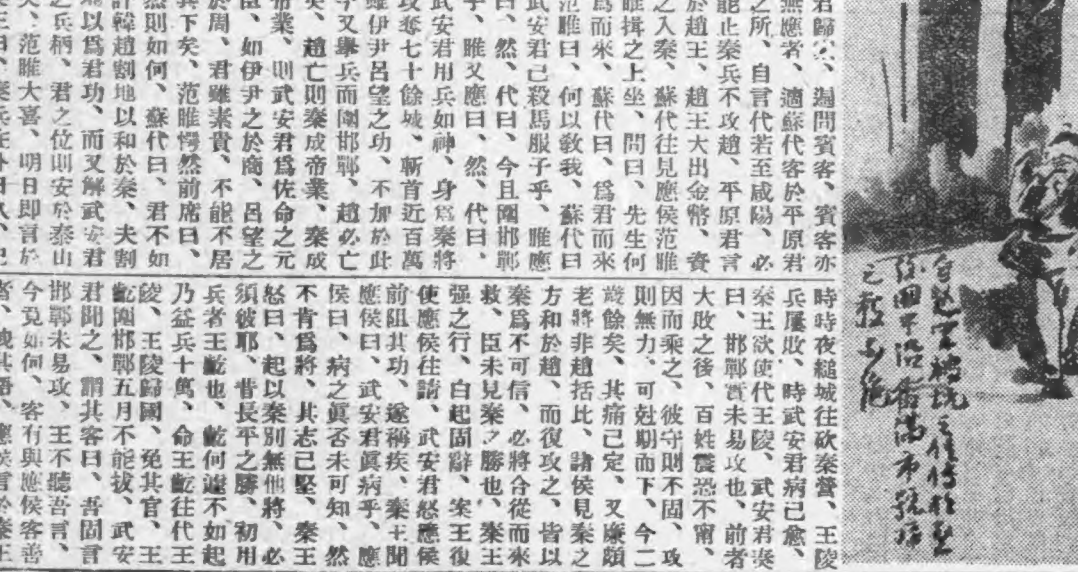 君歸、遍問賓客、賓客亦
無應者、適蘇代客於平原君
之所、自言代若至咸陽、必
能止秦兵不攻趙、平原君言
於趙王、趙王大出金幣、資
之入秦、蘇代往見應侯范雎
雎揖之上坐、問曰、先生何
爲而來、蘇代曰、爲君而來
范雎曰、何以敎我、蘇代曰
武安君已殺馬服子乎、雎應
曰、然、代曰、今且圍邯鄲
乎、雎又應曰、然、代曰、
武安君用兵如神、身爲秦將
攻奪七十餘城、斬首近百萬
雖伊尹呂望之功、不加於此
今又舉兵而圍邯鄲、趙必亡
矣、趙亡則秦成帝業、秦成
帝業、則武安君爲佐命之元
臣、如伊尹之於商、呂望之
於周、君雖素貴、不能不居
其下矣、范雎愕然前席曰、
然則如何、蘇代曰、君不如
許韓趙割地以和於秦、夫割
地以爲君功、而又解武安君
之兵柄、君之位則安於泰山
矣、范雎大喜、明日即言於
曰、秦兵在外日久、已
時時夜縋城往砍秦營、王陵
兵屢敗、時武安君病已愈、
秦王欲使代王陵、武安君奏
曰、邯鄲實未易攻也、前者
大敗之後、百姓震恐不甯、
因而乘之、彼守則不固、攻
則無力、可尅期而下、今二
歲餘矣、其痛已定、又廉頗
老將非趙括比、諸侯見秦之
方和於趙、而復攻之、皆以
秦爲不可信、必將合從而來
救、臣未見秦之勝也、秦王
强之行、白起固辭、秦王復
使應侯往請、武安君怒應侯
前阻其功、遂稱疾、秦王聞
應侯曰、武安君眞病乎、應
侯曰、病之眞否未可知、然
不肯爲將、其志已堅、秦王
怒曰、起以秦別無他將、必
須彼耶、昔長平之勝、初用
兵者王齕也、齕何遽不如起
乃益兵十萬、命王齕往代王
陵、王陵歸國、免其官、王
齕圍邯鄲五月不能拔、武安
君聞之、謂其客曰、吾固言
邯鄲未易攻、王不聽吾言、
今竟如何、客有與應侯客善
者、洩其語、應侯言於秦王